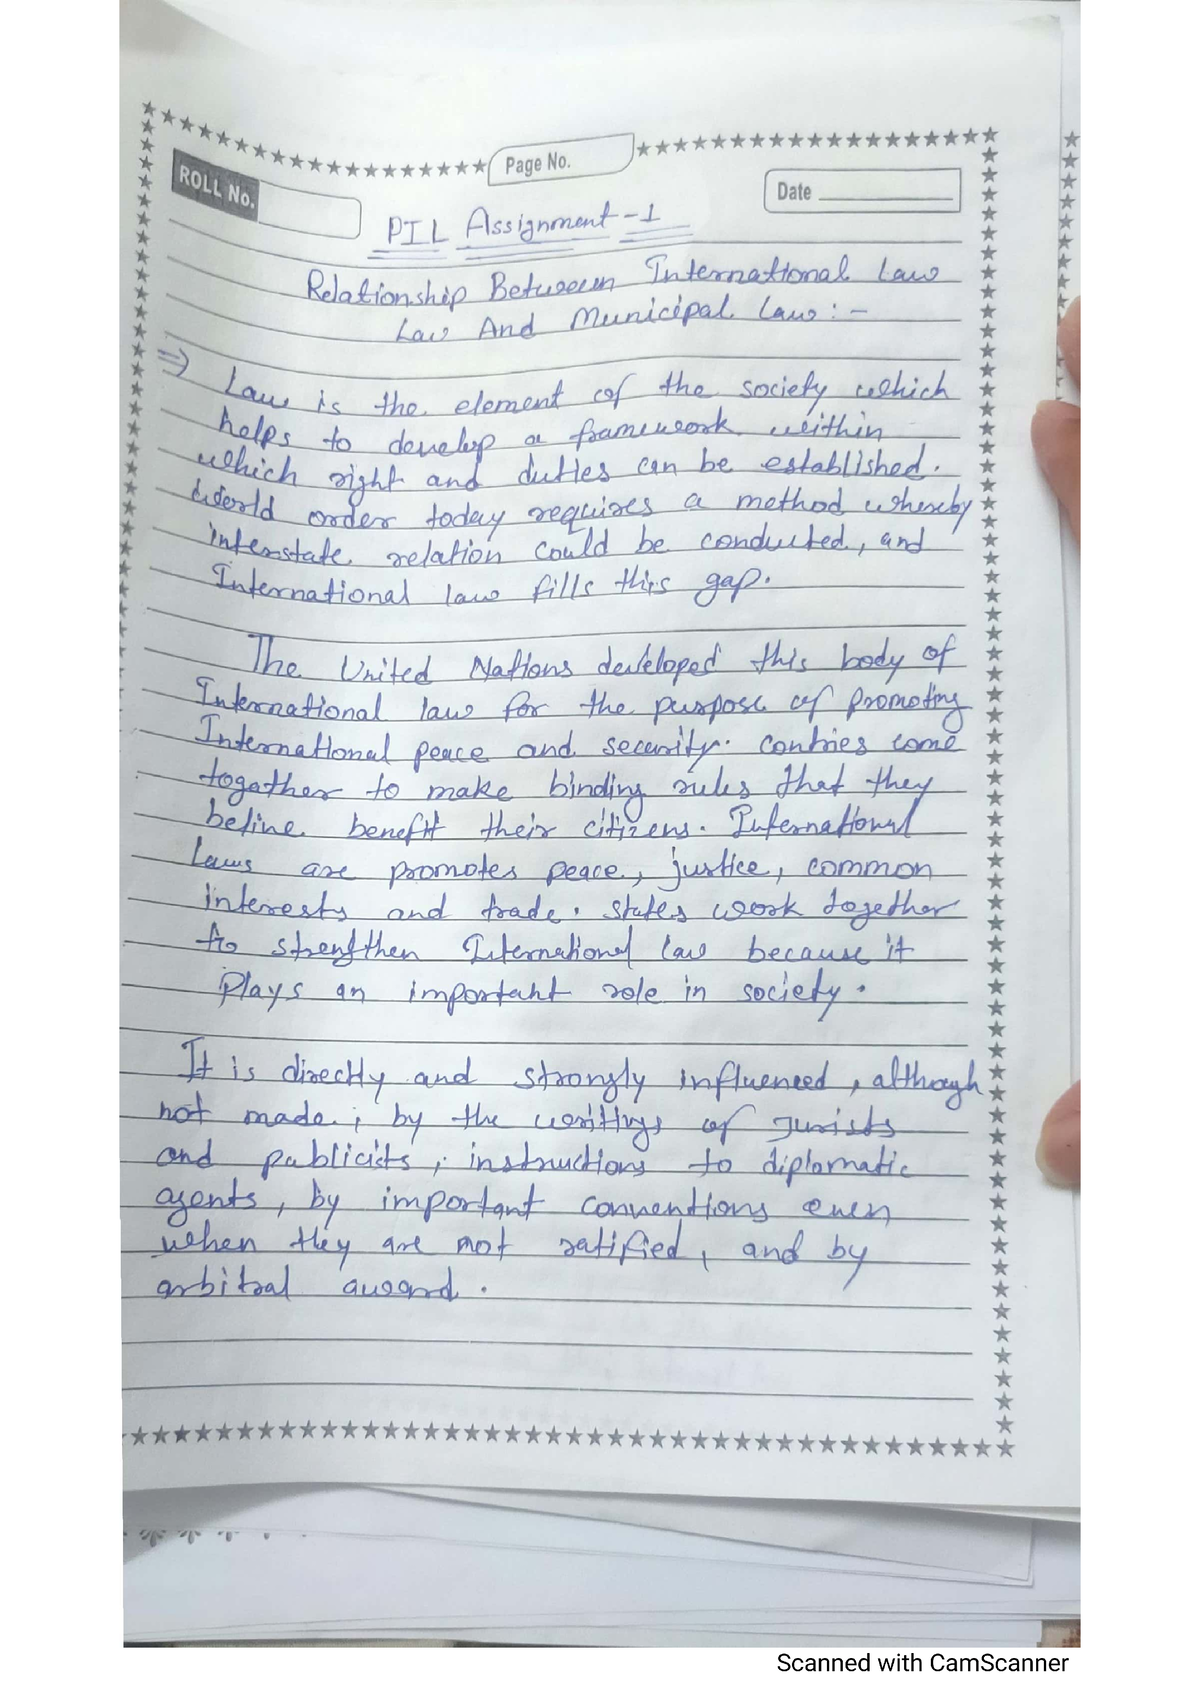 Page No.
ROLL No.
Date
PIL Assignment-1
Relationship Between International Law
Law And Municipal Law:-
⇒ Law is the element of the society which
helps to develop a framework within
which right and duties can be established.
World order today requires a method whereby
interstate relation could be conducted, and
International law fills this gap.
The United Nations developed this body of
International law for the purpose of promoting
International peace and security. Contries come
togather to make binding rules that they
beline benefit their citizens. International
Laws are promotes peace, justice, common
interests and trade. States work together
to strengthen International law because it
Plays an important role in society.
It is directly and strongly influened, although
not made; by the writtings of Jurists
and publicists, instructions to diplomatic
agents, by important conventions even
when they are not ratified, and by
arbitral award.
Scanned with CamScanner